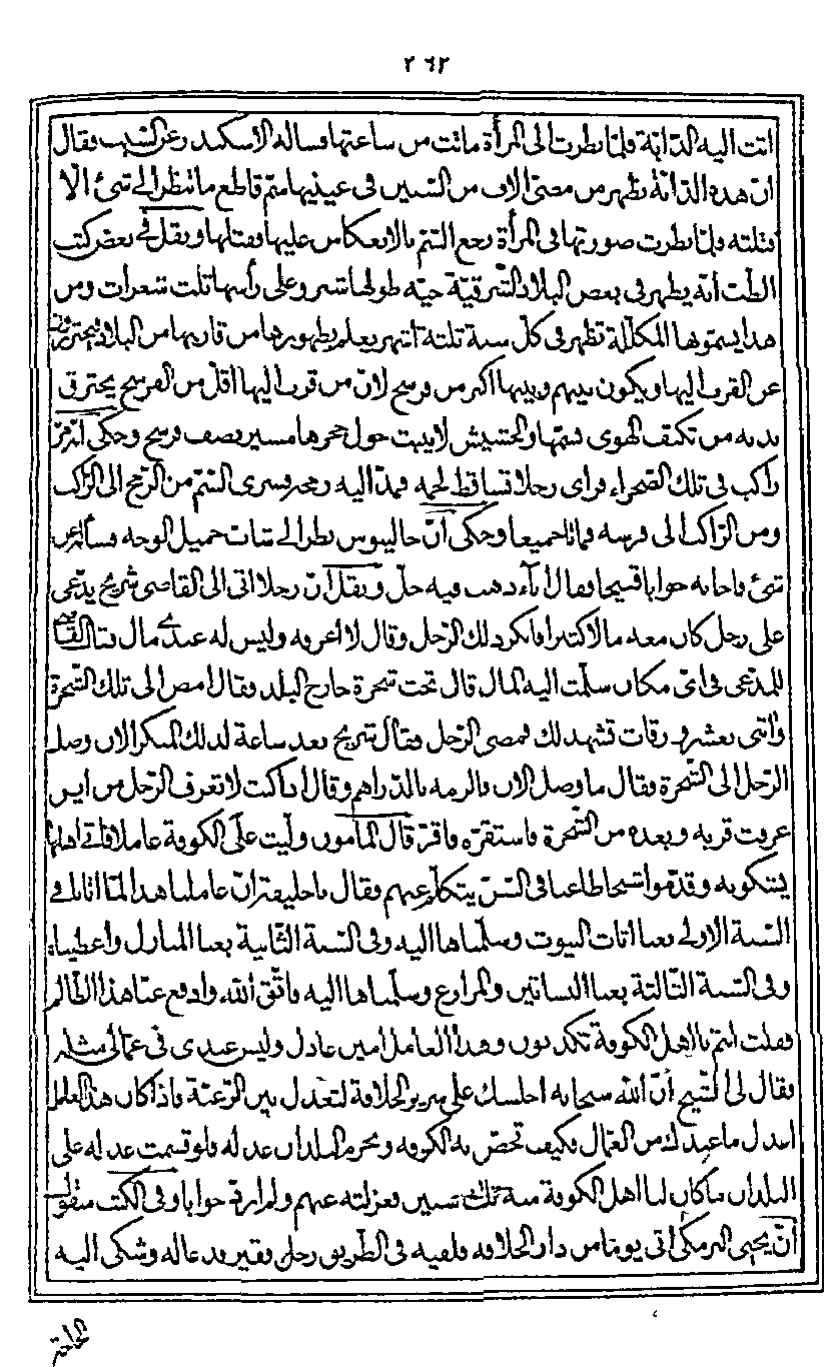 ٢٦٢
اتت اليه الدابة فلما نظرت الى المرأة ماتت من ساعتها فساله الاسكندر عن السبب فقال
ان هذه الدابة تظهر من مضى الاف من السنين فى عينيها سم قاطع ما تنظر الى شئ الا
قتلته فلما نظرت صورتها فى المرأة رجع السم بالانعكاس عليها فقتلها ونقل فى بعض كتب
الطب انه يظهر فى بعض البلاد الشرقية حية طولها شبر وعلى رأسها ثلث شعرات ومن
هذا يسموها المكللة تظهر فى كل سنة ثلثة اشهر يعلم بظهورها من قاربها من البلاد فيحترزون
عن القرب اليها ويكون بينهم وبينها اكثر من فرسخ لان من قرب اليها اقل من الفرسخ يحترق
بدنه من تكيف الهوى بسمها والحشيش لا ينبت حول جحرها مسير نصف فرسخ وحكى انه مر
راكب فى تلك الصحراء فراى رجلا قد تساقط لحمه فمد اليه رمحه فسرى السم من الرمح الى الراكب
ومن الراكب الى فرسه فماتا جميعا وحكى ان جالينوس نظر الى شاب جميل الوجه فسأله عن
شئ فاجابه جوابا قبيحا فقال اناء ذهب فيه خل ونقل ان رجلا اتى الى القاضى شريح يدعى
على رجل كان معه مال اكثيرا فانكر ذلك الرجل وقال لا اعرفه وليس له عندى مال فقال القاضى
للمدعى فى اى مكان سلمت اليه المال قال تحت شجرة خارج البلد فقال امض الى تلك الشجرة
وأتنى بعشر ورقات تشهد لك فمضى الرجل فقال شريح بعد ساعة لذلك المنكر الان وصل
الرجل الى الشجرة فقال ما وصل الان فالزمه بالدراهم وقال اذا كنت لا تعرف الرجل من اين
عرفت قربه وبعده من الشجرة فاستقره فاقر قال المأمون وليت على الكوفة عاملا فاتى اهلها
يشكونه وقدموا شيخا طاعنا فى السن يتكلم عنهم فقال يا خليفة ان عاملنا هذا لما اتانا فى
السنة الاولى بعنا اثاث البيوت وسلمناها اليه وفى السنة الثانية بعنا المنازل واعطيناه
وفى السنة الثالثة بعنا البساتين والمزارع وسلمناها اليه فاتق الله وادفع عنا هذا الظالم
فقلت انتم يا اهل الكوفة تكذبون وهذا العامل امين عادل وليس عندى فى عمالى مثله
فقال لى الشيخ ان الله سبحانه اجلسك على سرير الخلافة لتعدل بين الرعية فاذا كان هذا العامل
اعدل ما عندك من العمال فكيف تخص به الكوفه وتحرم البلدان عدله فلو قسمت عدله على
البلدان ما كان لنا اهل الكوفة منه ثلث سنين فعزلته عنهم ولم ارد جوابا وفى الكتب منقول
ان يحيى البرمكى اتى يوما من دار الخلافه فلقيه فى الطريق رجل فقير فدعا له وشكى اليه
الحاجة